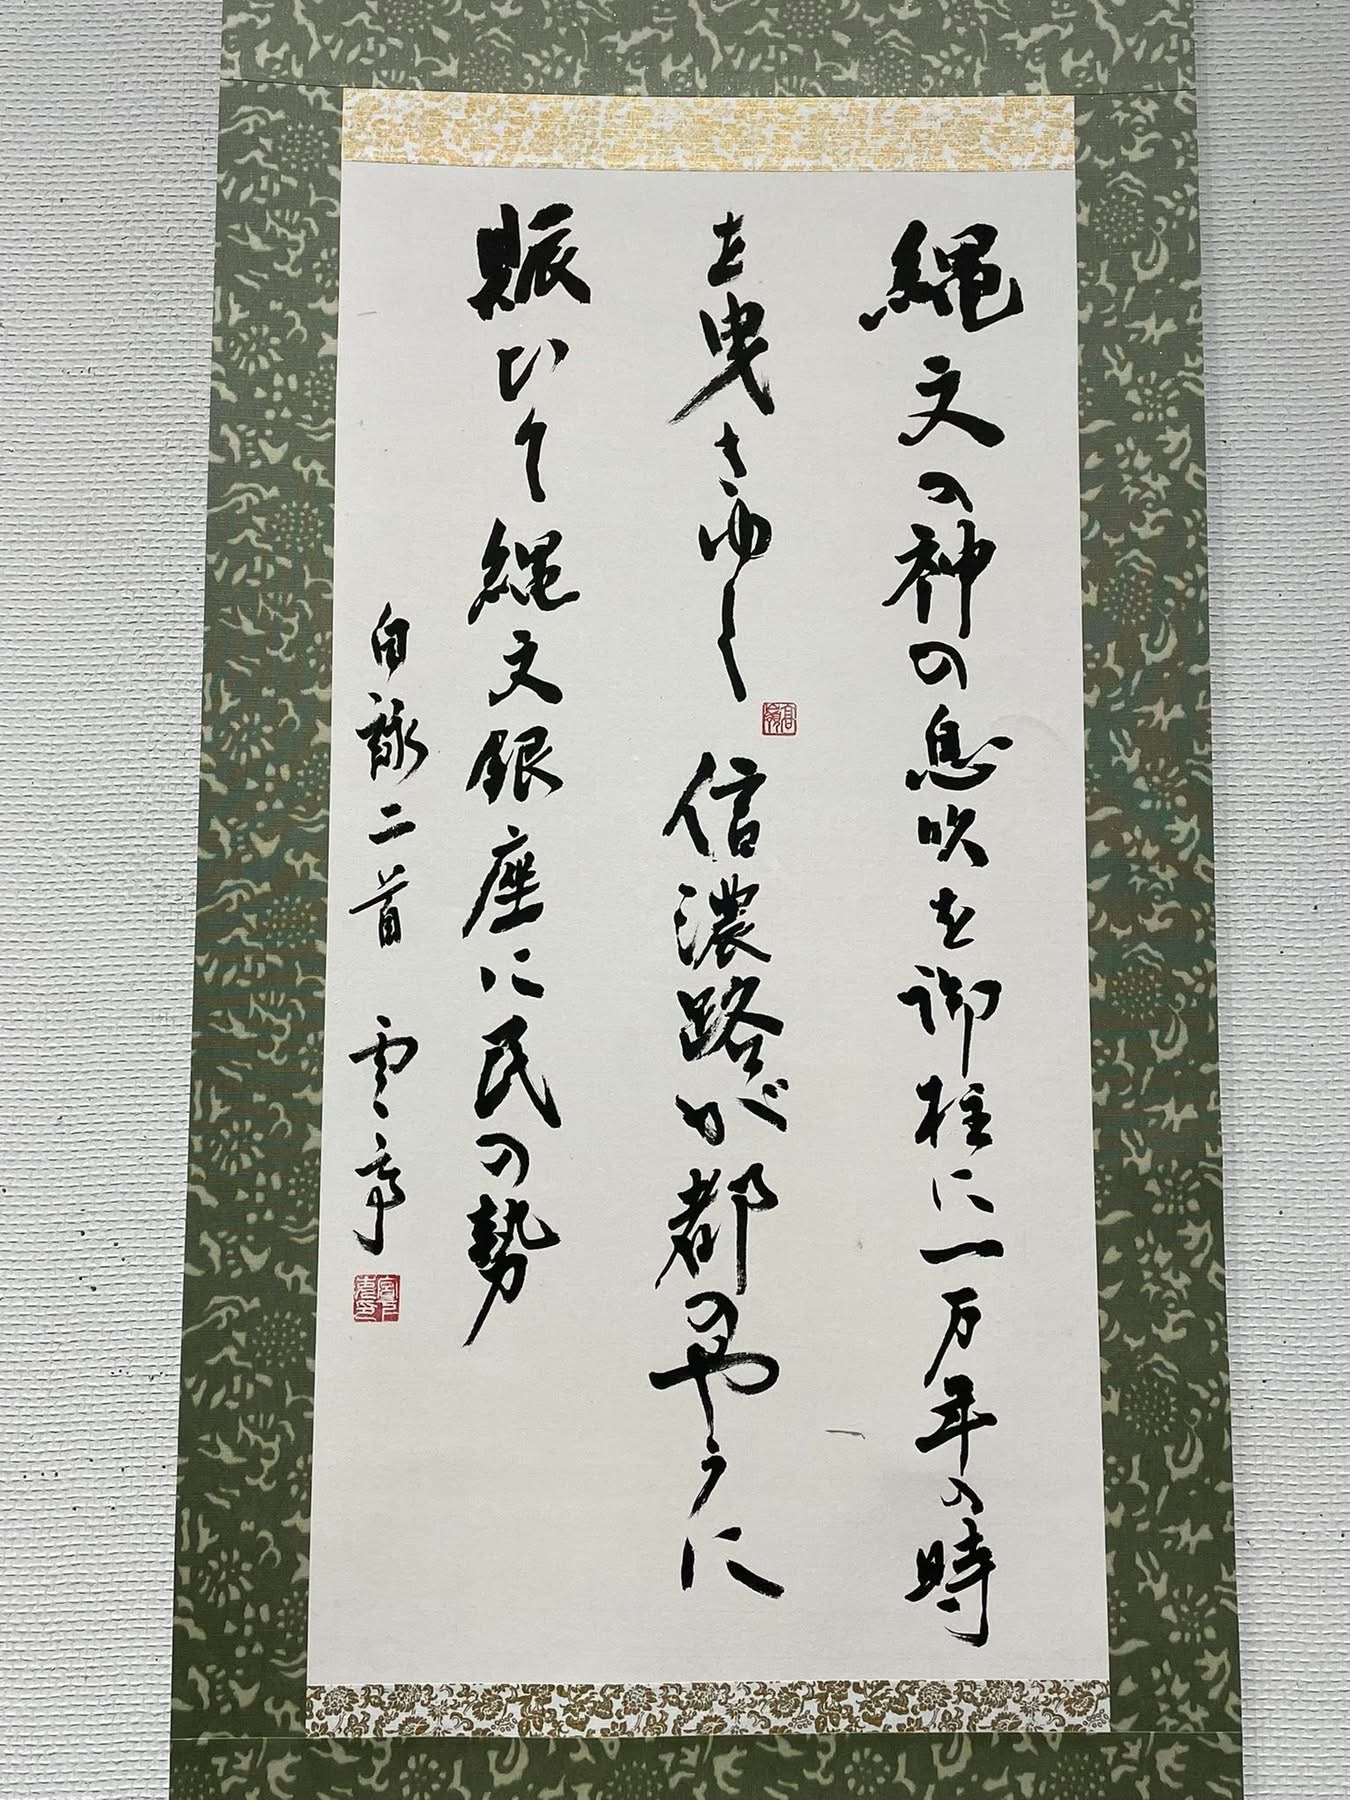 縄文の神の息吹を御柱に一万年の時
を曳きゆく 信濃路が都のやうに
賑ひて縄文銀座に民の勢
自詠二首 雲亭